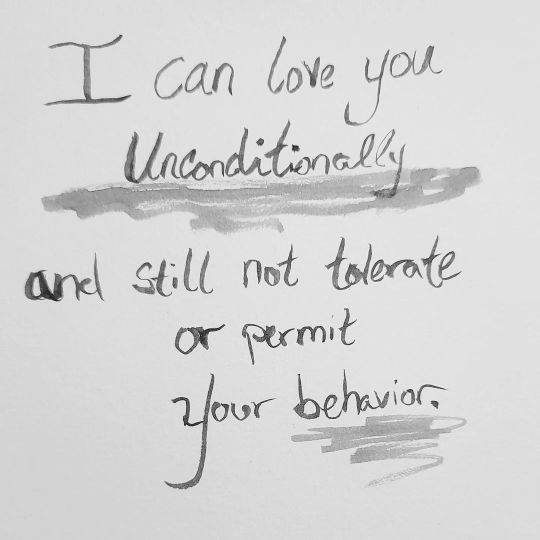 I can love you
Unconditionally
and still not tolerate
or permit
Your behavior.